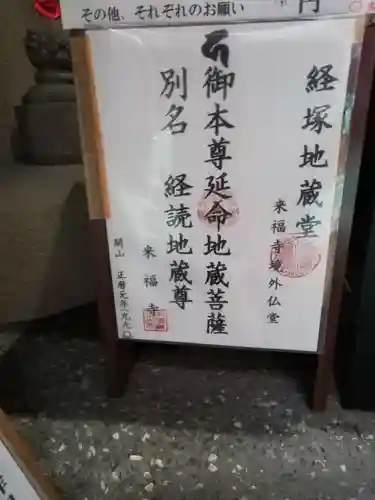 その他、それぞれのお願い
円
経塚地蔵堂
来福寺境外仏堂
御本尊延命地蔵菩薩
別名 経読地蔵尊
来福寺
開山 正暦元年一九九〇